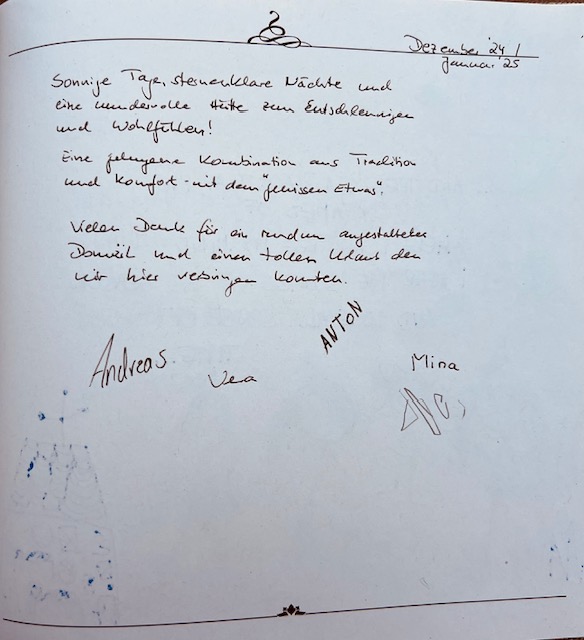 Dezember '24 /
Januar '25
Sonnige Tage, sternenklare Nächte und
eine wundervolle Hütte zum Entschleunigen
und Wohlfühlen!
Eine gelungene Kombination aus Tradition
und Komfort - mit dem "gewissen Etwas".
Vielen Dank für ein rundum ausgestattetes
Domizil und einen tollen Urlaub den
wir hier verbringen konnten.
ANTON
Andreas
Vera
Mina